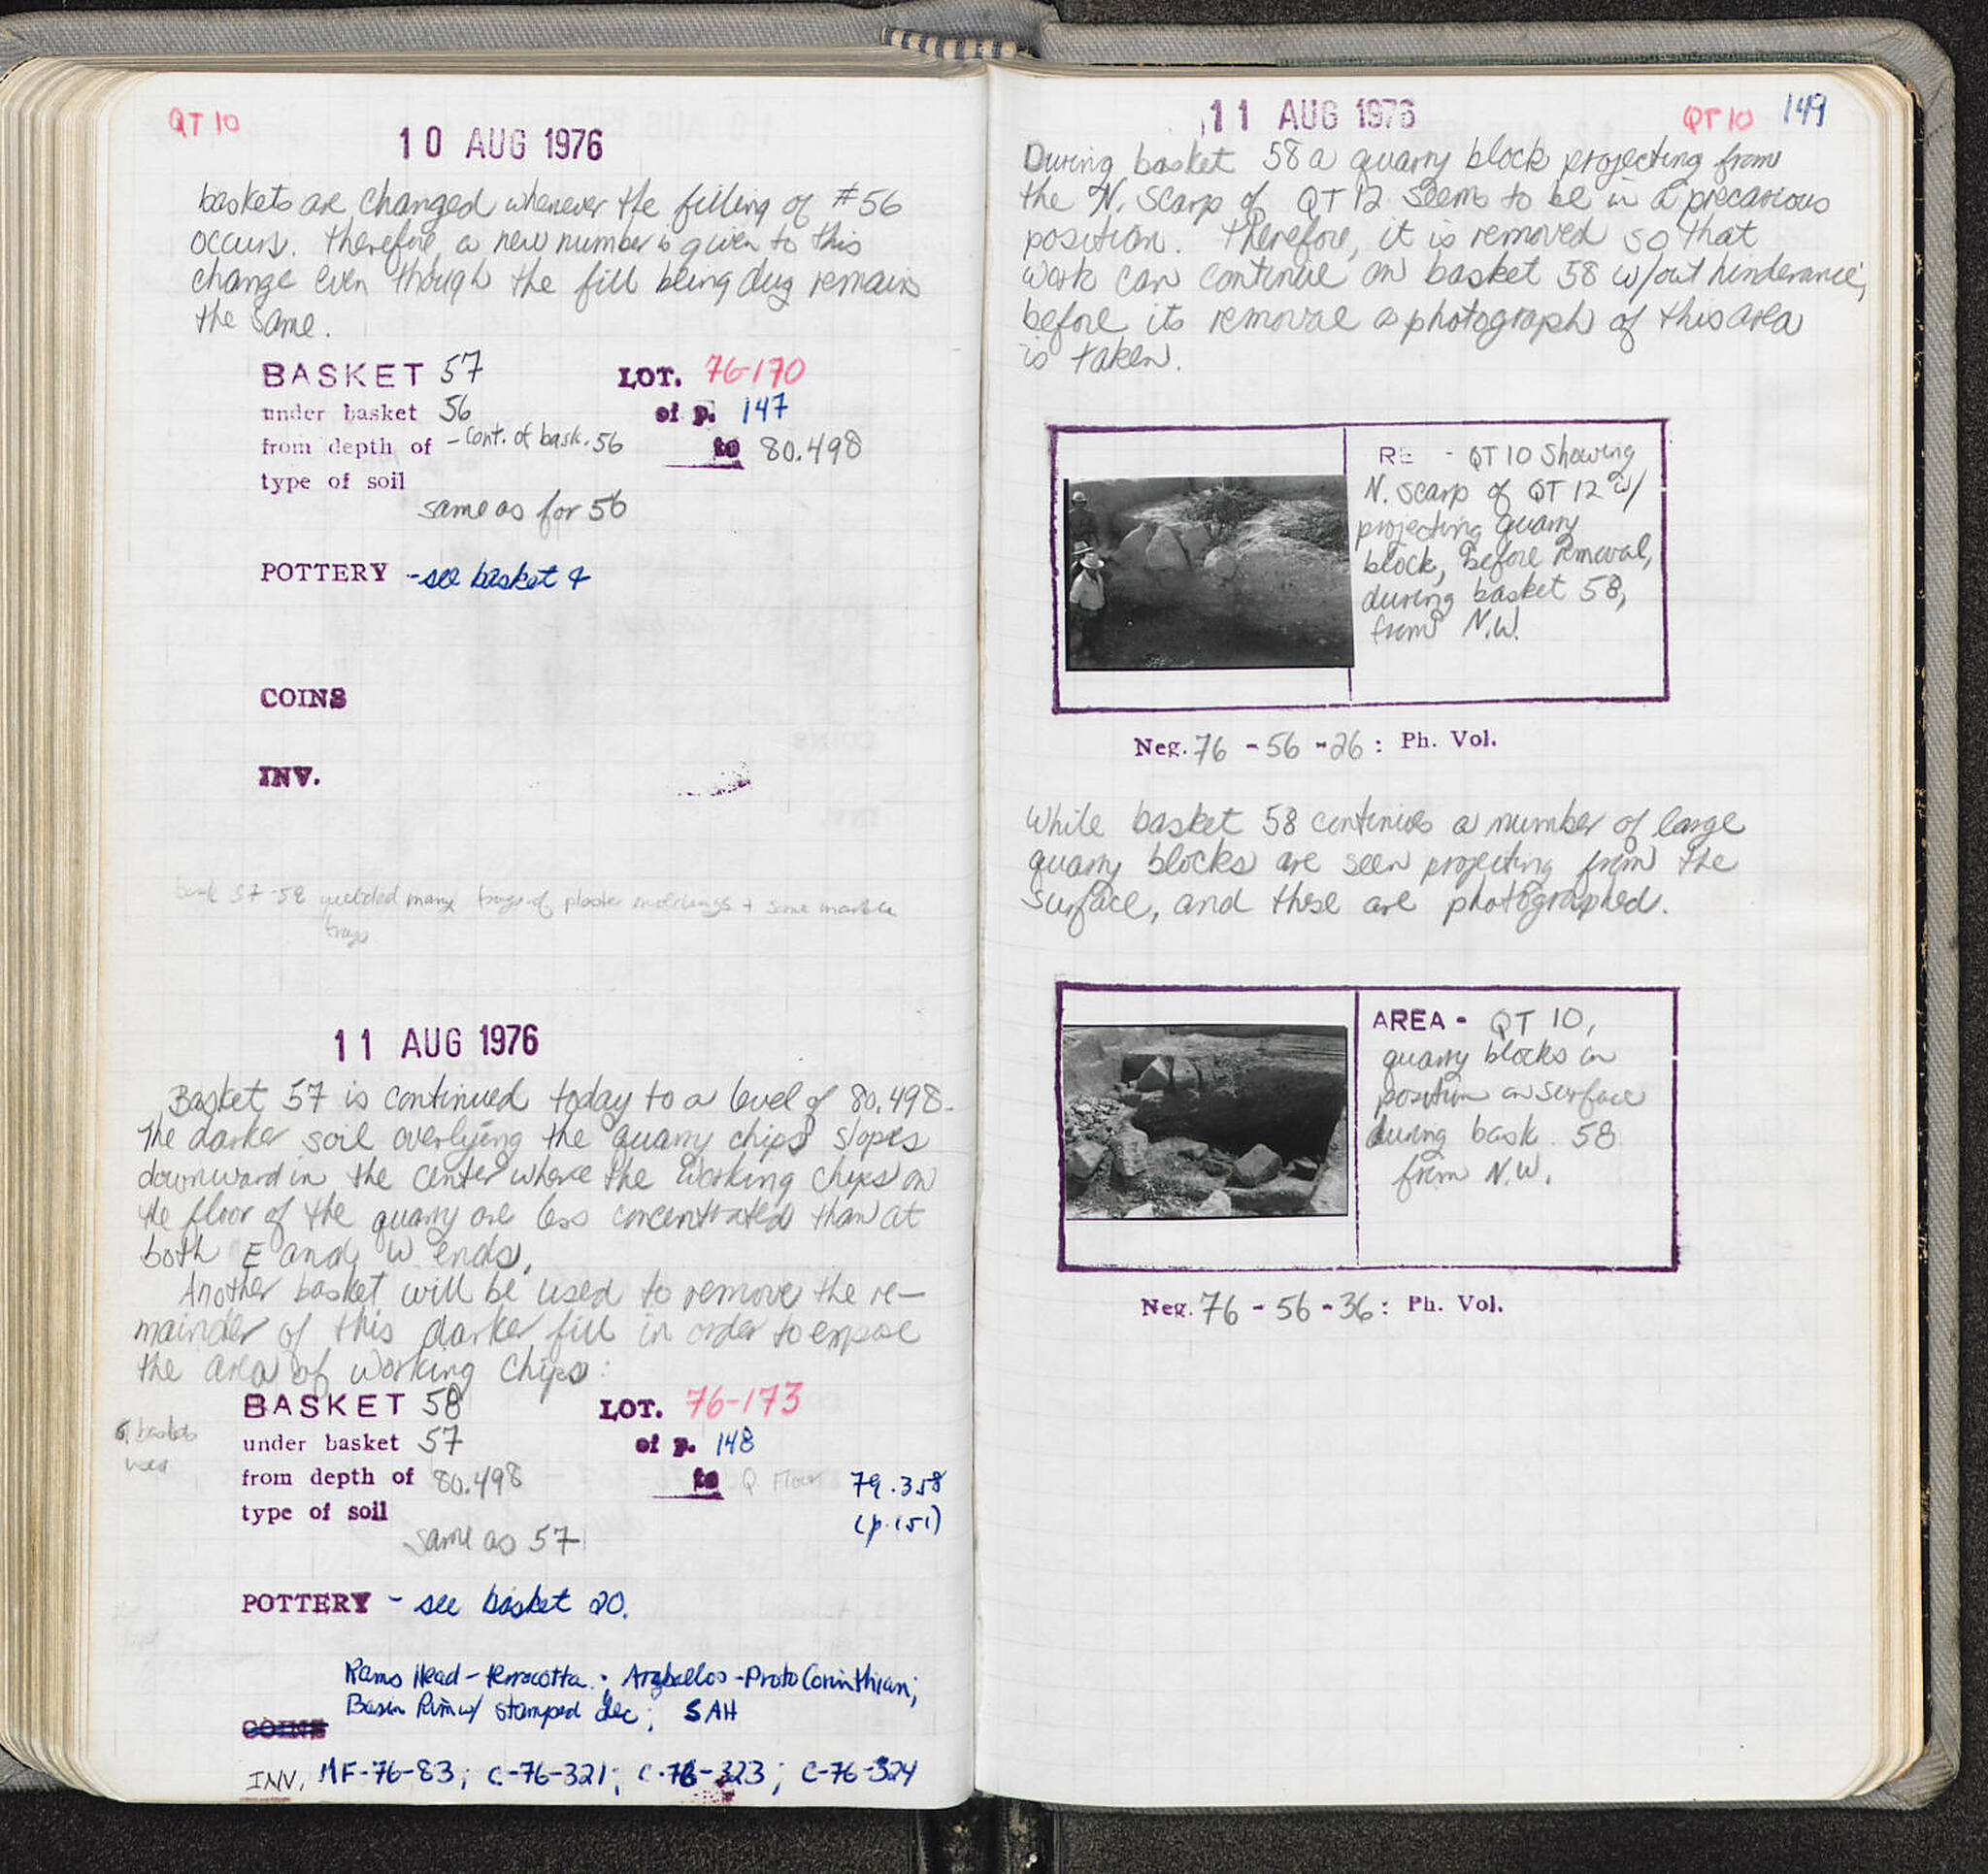 QT 10
10 AUG 1976
baskets are changed whenever the filling of #56
occurs. Therefore, a new number is given to this
change even though the fill being dug remains
the same.
BASKET 57 LOT. 76-170
under basket 56 of p. 147
from depth of - cont. of bask. 56 to 80.498
type of soil
same as for 56
POTTERY - see basket 4
COINS
INV.
57-58 yielded many trays of plaster moldings + some marble
frags
11 AUG 1976
Basket 57 is continued today to a level of 80.498.
The darker soil overlying the quarry chips slopes
downward in the center where the working chips on
the floor of the quarry are less concentrated than at
both E and W ends.
Another basket will be used to remove the re-
mainder of this darker fill in order to expose
the area of working chips:
BASKET 58 LOT. 76-173
baskets
used
under basket 57 of p. 148
from depth of 80.498 to Q. Floor 79.358
type of soil (p. 151)
same as 57
POTTERY - see basket 20.
Rams Head - terracotta; Aryballos - Proto Corinthian;
Basin Rim w/ stamped dec; SAH
COINS
INV. MF-76-83; C-76-321; C-76-323; C-76-324
11 AUG 1976 QT 10 149
During basket 58 a quarry block projecting from
the N. scarp of QT 12 seems to be in a precarious
position. Therefore, it is removed so that
work can continue on basket 58 w/out hinderance;
before its removal a photograph of this area
is taken.
RE - QT 10 Showing
N. scarp of QT 12 w/
projecting quarry
block, before removal,
during basket 58,
from N.W.
Neg. 76 - 56 - 26 : Ph. Vol.
While basket 58 continues a number of large
quarry blocks are seen projecting from the
surface, and these are photographed.
AREA - QT 10,
quarry blocks in
position on surface
during bask. 58
from N.W.
Neg. 76 - 56 - 36 : Ph. Vol.